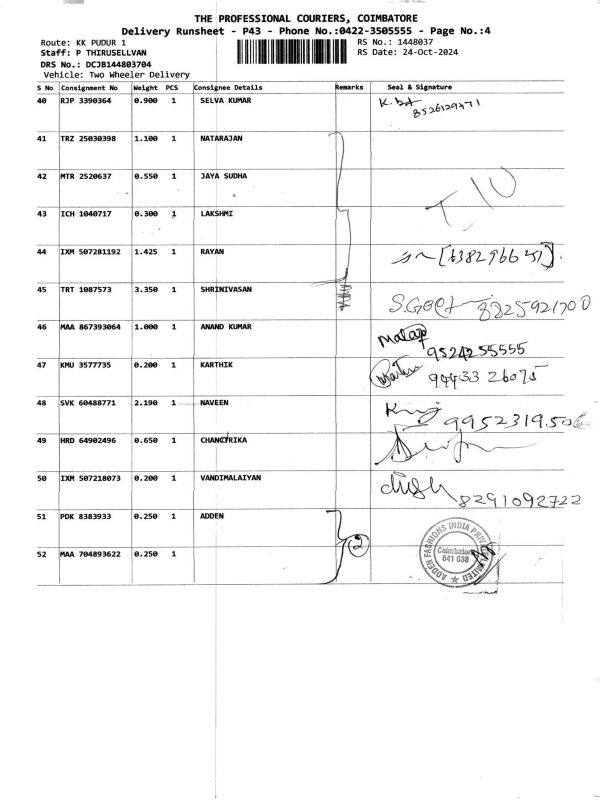 THE PROFESSIONAL COURIERS, COIMBATORE
Delivery Runsheet - P43 - Phone No.:0422-3505555 - Page No.:4
Route: KK PUDUR 1 RS No.: 1448037
Staff: P THIRUSELLVAN RS Date: 24-Oct-2024
DRS No.: DCJB144803704
Vehicle: Two Wheeler Delivery
S No Consignment No Weight PCS Consignee Details Remarks Seal & Signature
40 RJP 3390364 0.900 1 SELVA KUMAR
41 TRZ 25030398 1.100 1 NATARAJAN
42 MTR 2520637 0.550 1 JAYA SUDHA
43 ICH 1040717 0.300 1 LAKSHMI
44 IXM 507281192 1.425 1 RAYAN
45 TRT 1087573 3.350 1 SHRINIVASAN 8825921700
46 MAA 867393064 1.000 1 ANAND KUMAR 9524255555
47 KMU 3577735 0.200 1 KARTHIK 94433 26075
48 SVK 60488771 2.190 1 NAVEEN 9952319506
49 HRD 64902496 0.650 1 CHANDRIKA
50 IXM 507218073 0.200 1 VANDIMALAIYAN 8291092722
51 PDK 8383933 0.250 1 ADDEN
52 MAA 704893622 0.250 1 2
ADDEN FASHIONS INDIA PRIVATE LIMITED
Coimbatore
641 038